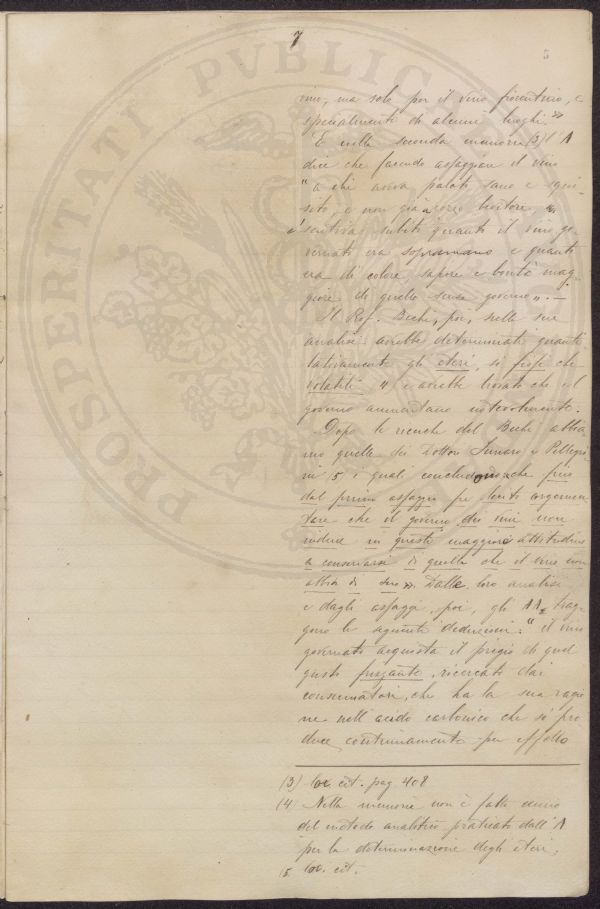 7
5
no, ma solo per il vino fiorentino, e
specialmente di alcuni luoghi"
E nella seconda memoria (3) l'A
dice che facendo assaggiare il vino
"a chi aveva palato sano e squi-
sito, e non già a rozzo bevitore
sentiva subito quanto il vino go-
vernato era sopramano e quanto
era di colore sapore e bontà mag-
giore di quello senza governo". —
Il Prof. Bechi, poi, nelle sue
analisi avrebbe determinati quanti
tativamente gli eteri, sì fissi che
volatili (4) e avrebbe trovato che col
governo aumentano notevolmente.
Dopo le ricerche del Bechi abbia-
mo quelle dei Dottori Funaro e Pellegri
ni (5) i quali concludono che fino
dal primo assaggio fu lecito argomen
tare che il governo dei vini non
induce in questi maggiore attitudine
a conservarsi di quella che il vino non
abbia di suo". Dalle loro analisi
e dagli assaggi, poi, gli AA. trag-
gono le seguenti deduzioni: "il vino
governato acquista il pregio di quel
gusto frizzante, ricercato dai
consumatori, che ha la sua ragio
ne nell'acido carbonico che si pro
duce continuamente per effetto
(3) loc. cit. pag 408
(4) Nella memoria non è fatto cenno
del metodo analitico praticato dall'A
per la determinazione degli eteri.
(5 loc. cit.
PROSPERITATI PVBLIC